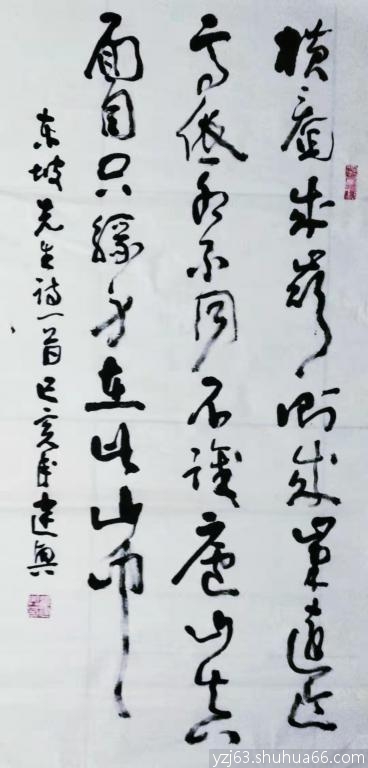 横看成嶺側成峯遠近
高低各不同不識廬山真
面目只緣身在此山中
东坡先生诗一首己亥建興
yzj63.shuhua66.com